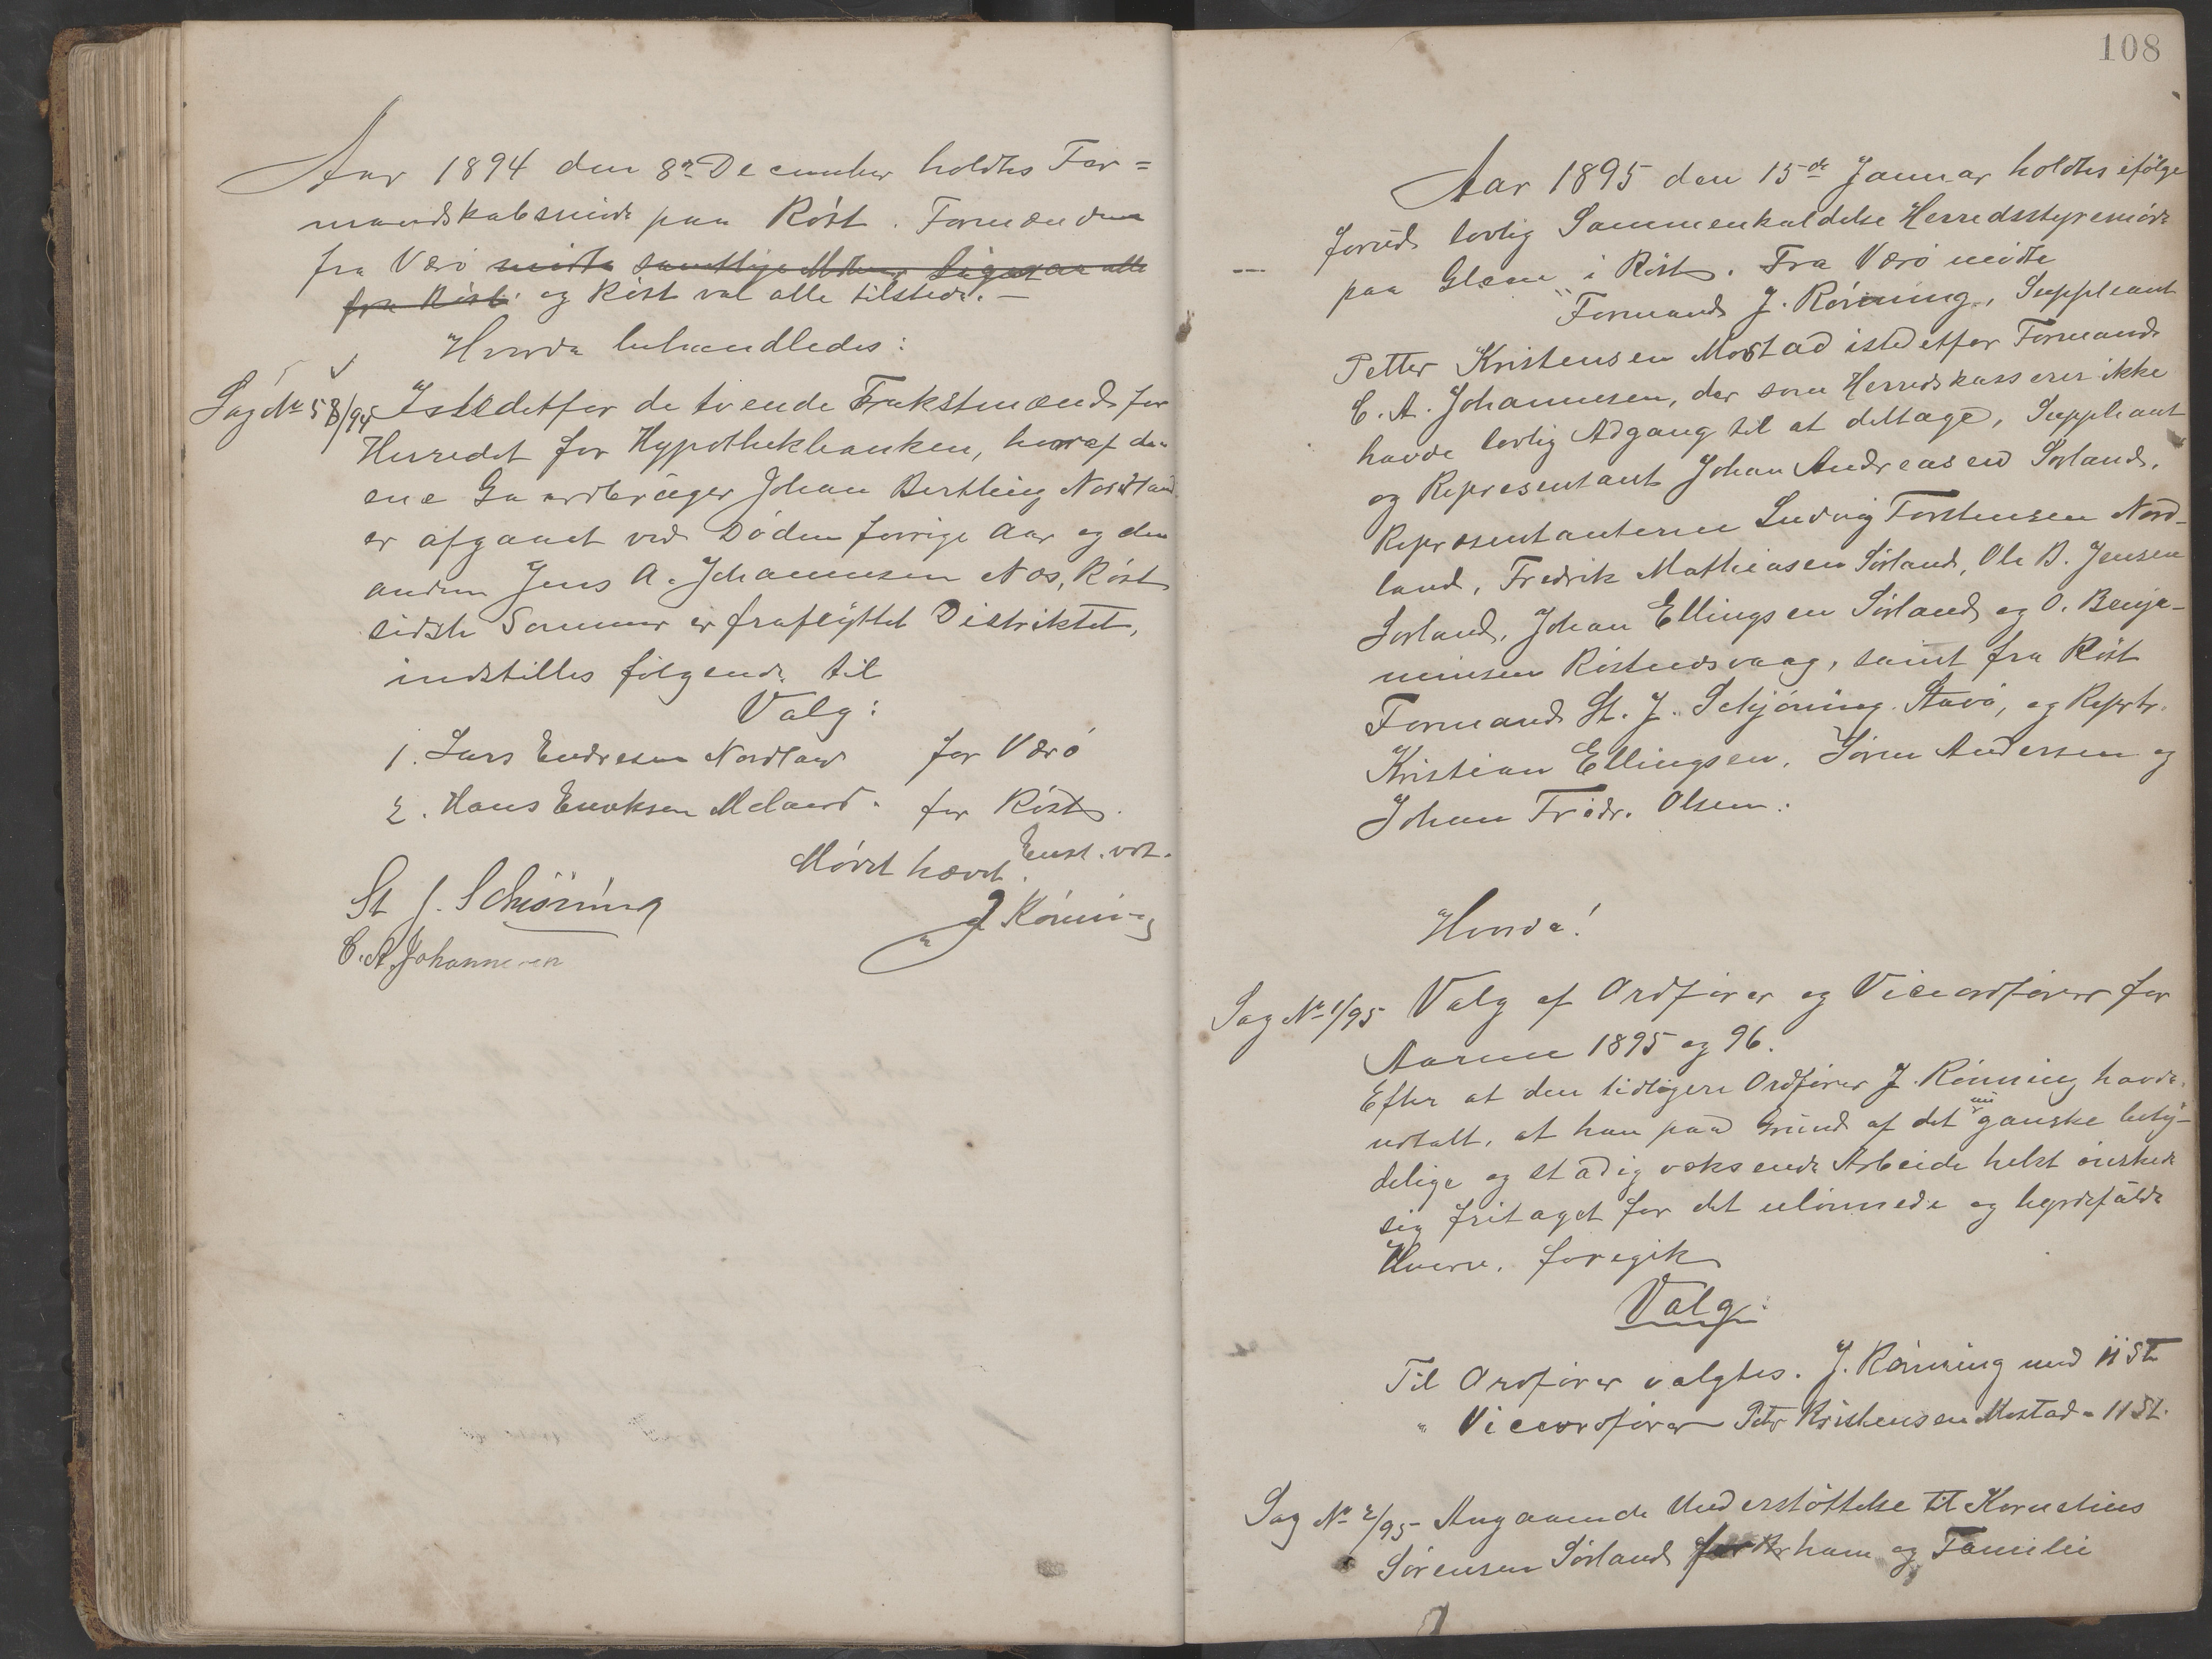 Aar 1894 den 8de December holdtes For=
mandskabsmöde paa Röst. Formændene
fra Værö mödte samtlige
fra Röst. og Röst var alle tilstede. —
Hvorda behandledes:
Sag No 58/94 Istedetfor de tvende Takstmænd for
Herredet for Hypothekbanken, hvoraf den
ene Gaardbruger Johan Berthing Nordland
er afgaaet ved Döden forrige Aar og den
anden Jens A. Johannesen Næs, Röst
sidste Sommer er fraflyttet Distriktet,
indstilles fölgende til
Valg:
1. Lars Endresen Nordland for Værö
2. Hans Enoksen Meland for Röst.
Enst. vdt.
Mödet hævet.
St. J. Schiöning
J Rönning
C. A. Johannesen
108
Aar 1895 den 15de Januar holdtes ifölge
forud lovlig Sammenkaldelse Herredsstyremöde
paa Glæa i Röst. Fra Værö mödte
Formand J. Rönning, Suppleant
Petter Kristensen Mostad istedetfor Formand
C. A. Johannesen, der som Herredskasserer ikke
havde lovlig Adgang til at deltage, Suppleant
og Representant Johan Andreasen Sörland,
Repræsentanterne Ludvig Torstensen Nord-
land, Fredrik Mathiasen Sörland, Ole B. Jensen
Sörland, Johan Ellingsen Sörland og O. Benja-
minsen Röstnesvaag, samt fra Röst
Formand St. J. Schjöning Stavö, og Reprtr.
Kristian Ellingsen, Sören Andersen og
Johan Fredr. Olsen.
Hvorda!
Sag No 1/95 Valg af Ordförer og Viceordförer for
Aarene 1895 og 96.
Efter at den tidligere Ordförer J. Rönning havde
udtalt, at han paa Grund af det nu ganske bety-
delige og stadig voksende Arbeide helst önskede
sig fritaget for det ulönnede og byrdefulde
Hverv, foregik
Valg:
Til Ordförer valgtes J. Rönning med 11 St
" Viceordförer Petr Kristensen Mostad - 11 St.
Sag No 2/95 - Angaaende Understöttelse til Kornelius
Sörensen Sörland for ham og Familie